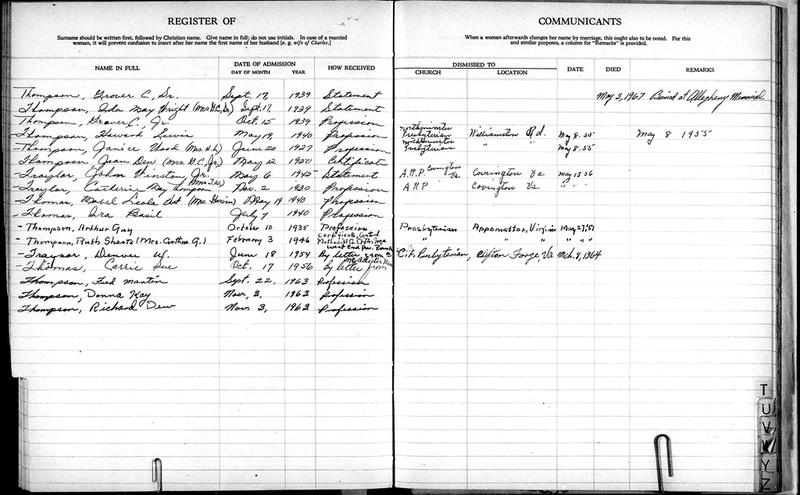 REGISTER OF
Surname should be written first, followed by Christian name. Give name in full; do not use initials. In case of a married
woman, it will prevent confusion to insert after her name the first name of her husband [e. g. wife of Charles.]
NAME IN FULL DATE OF ADMISSION HOW RECEIVED
DAY OF MONTH YEAR
Thompson, Grover C., Sr. Sept. 17, 1939 Statement
Thompson, Lola May Wright (Mrs. G.C., Sr.) Sept. 17, 1939 Statement
Thompson, Grover C. Jr. Oct. 15 1939 Profession
Thompson, Howard Lewis May 19, 1940 Profession
Thompson, Janice Wood (Mrs. H.L.) June 20 1927 Profession
Thompson, Jean Dew (Mrs. G.C., Jr.) May 12 1950 Certificate
Traylor, John Winston, Jr. May 6 1945 Statement
Traylor, Catherine Thompson Dec. 2 1930 Profession
Thomas, 1940 Profession
Thomas, Ira Basil July 7 1940 Profession
- Thompson, Arthur Guy October 10 1935 Profession
- Thompson, Ruth Sheats (Mrs. Arthur G.) February 3 1946
- Traynor, Denver W. June 18 1954 By letter from
Thomas, Carrie Sue Oct. 17 1956 by letter from
Thompson, Fred Martin Sept. 22, 1963 Profession
Thompson, Donna Kay Nov. 3, 1963 Profession
Thompson, Richard Dew Nov. 3, 1963 Profession
COMMUNICANTS
When a woman afterwards changes her name by marriage, this ought also to be noted. For this
and similar purposes, a column for "Remarks" is provided.
DISMISSED TO DATE DIED REMARKS
CHURCH LOCATION
May 3, 1967 Buried at Alleghany Memorial
Northminster Presbyterian Williamston Rd. May 8 - 55 May 8 1955
Northminster Presbyterian " " May 8 - 55
A.R.P. Covington Va Covington Va May 15 56
A R P Covington Va " " "
Presbyterian Appomattox, Virginia May 27, '51
" " " " "
C.F. Presbyterian, Clifton Forge, Va Mch. 8, 1964
T
U
V
W
Y
Z